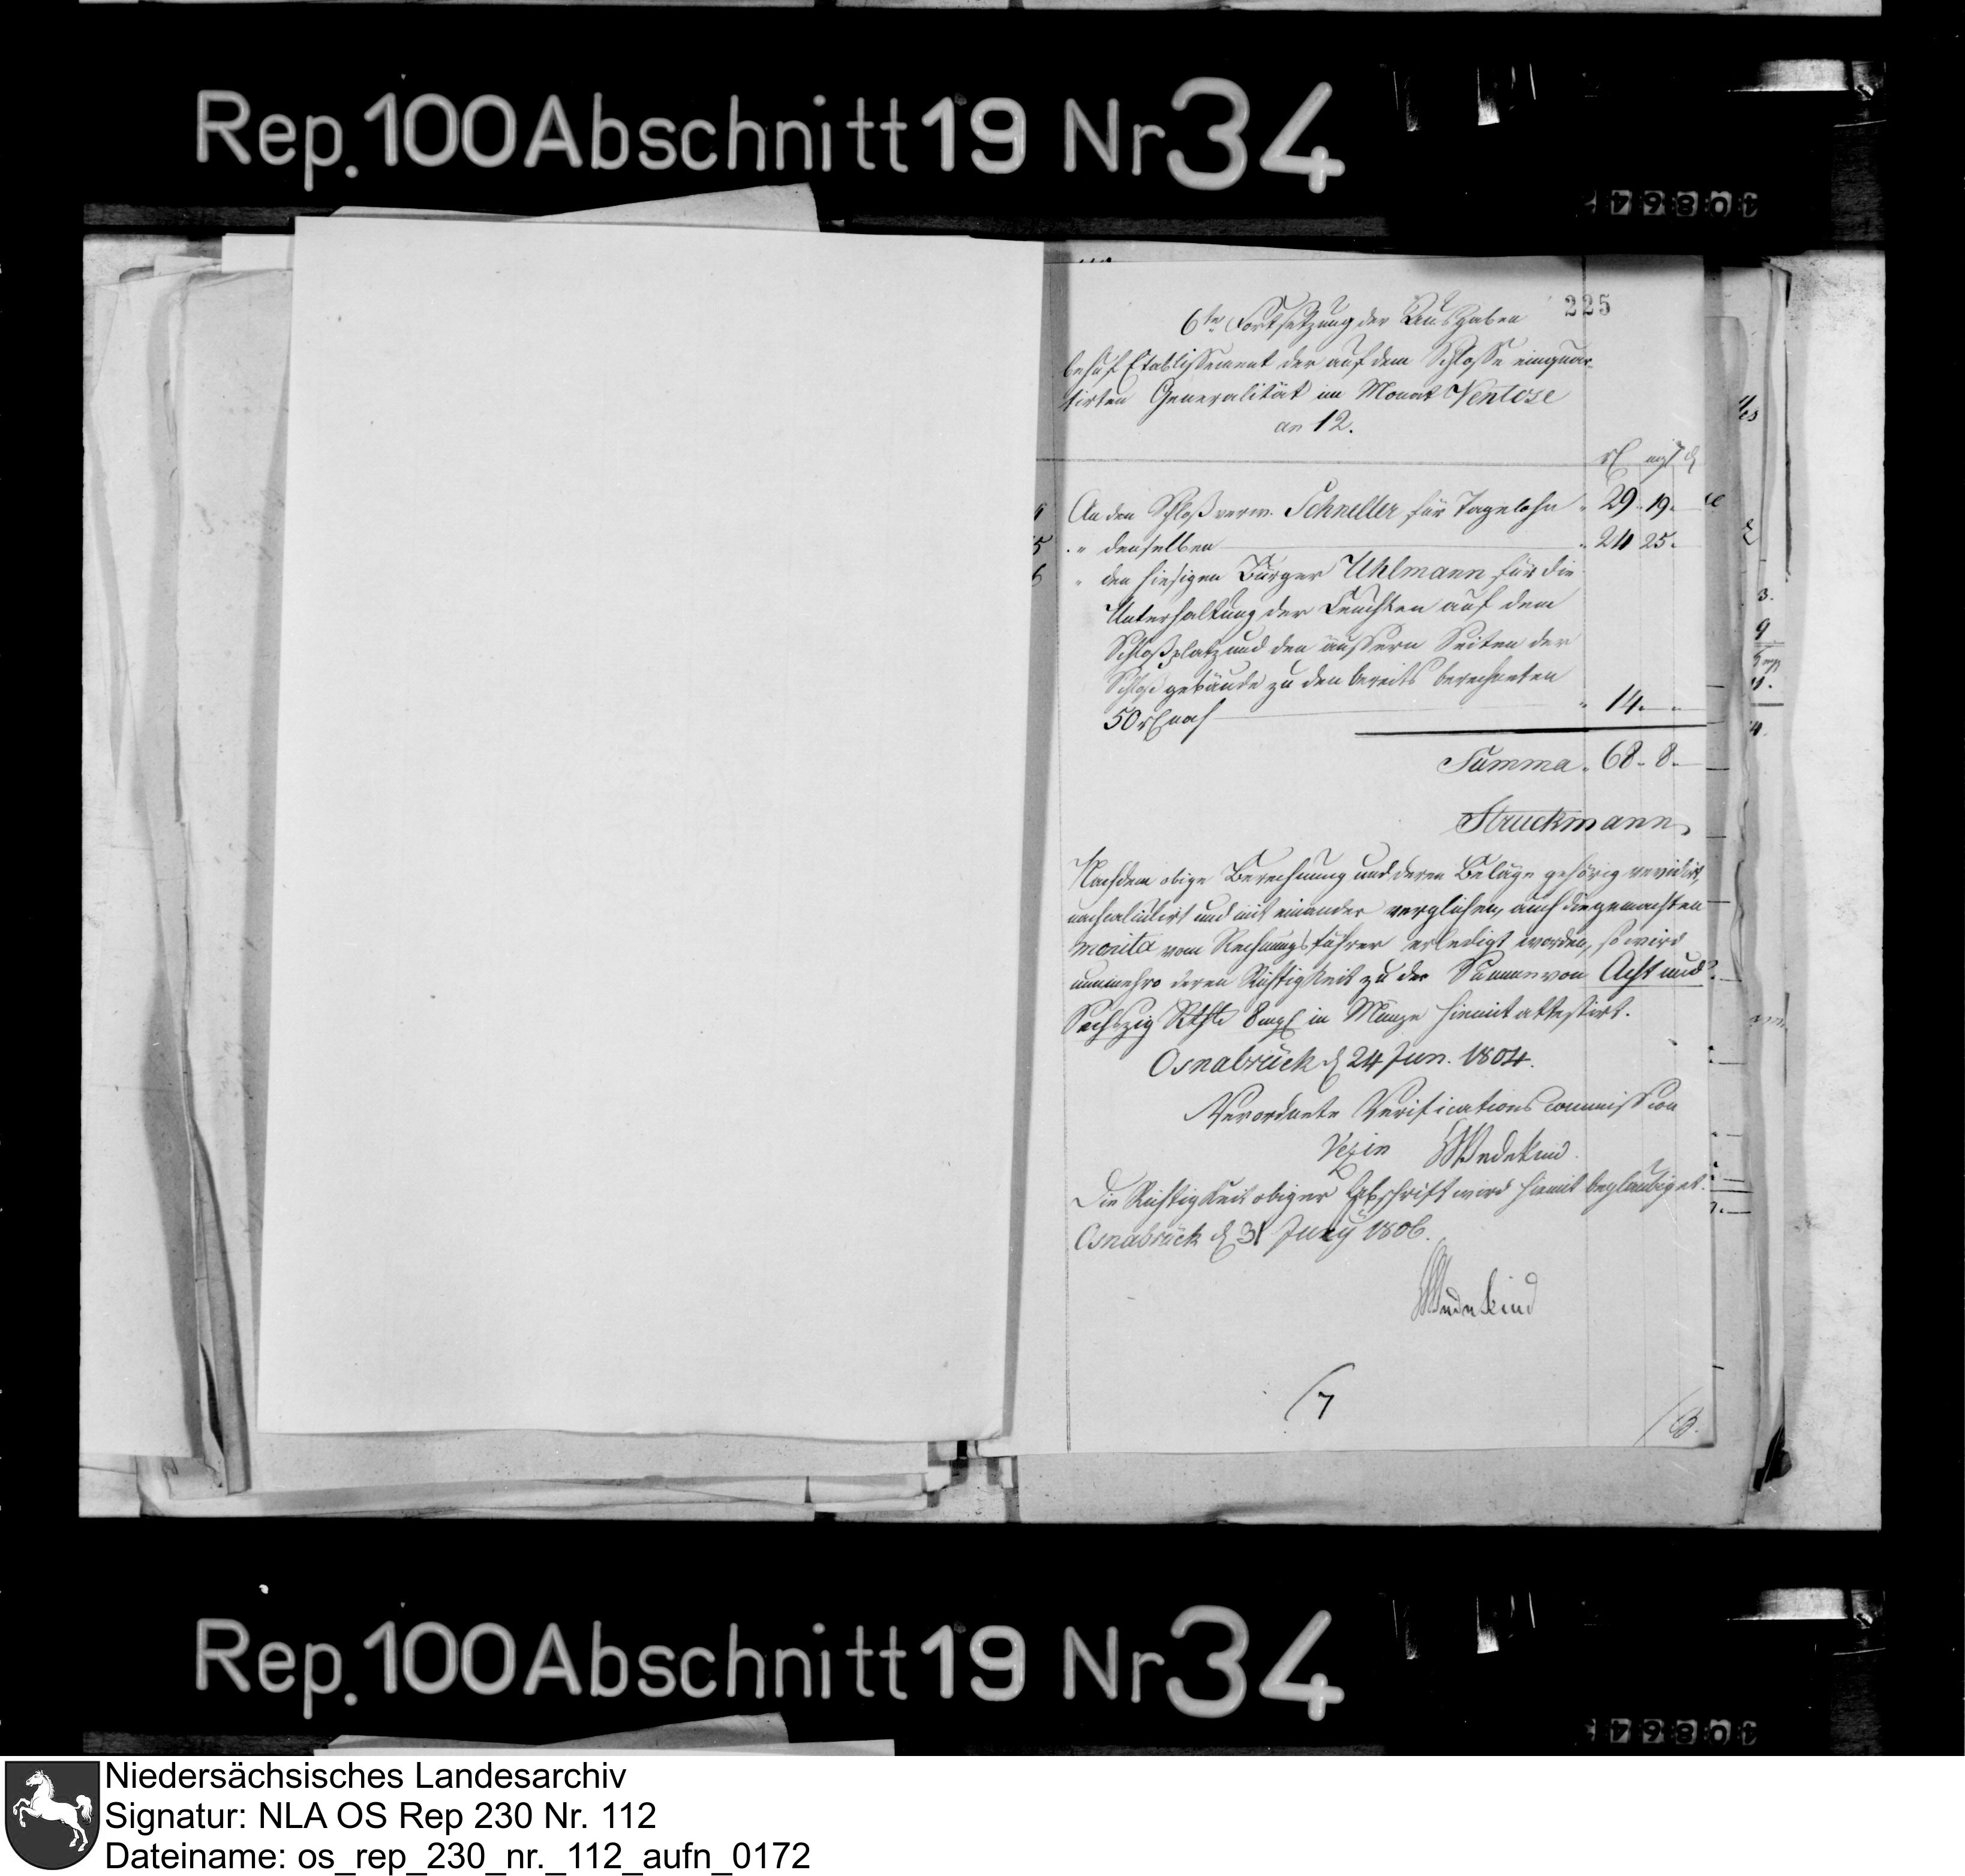 Rep. 100 Abschnitt 19 Nr 34
225
6te Fortsetzung der Ausgaben
behuf Etablissement der auf dem Schlosse einquar-
tirten Generalität im Monat Ventose
an 12.
rℓ mgl ₰
An den Schloßverw. Schneller für Tagelohn " 29. 19. —
5 . " denselben — " 24 25. 
6 " den hiesigen Bürger Uhlmann für die
Unterhaltung der Leuchten auf dem
Schloßplatz und den äussern Seiten der
Schloßgebäude zu den bereits berechneten
50 rℓ noch — " 14. — "
Summa " 68. 8. —
Struckmann
Nachdem obige Berechnung und deren Beläge gehörig revidirt,
nachcalculirt und mit einander verglichen, auch die gemachten
monita vom Rechnungsführer erledigt worden, so wird
nunmehro deren Richtigkeit zu der Summe von Acht und
Sechszig Rthlr 8 mgl in Münze hiemit attestirt.
Osnabrück ₰ 24 Jun. 1804.
Verordnete Verifications Commission
Vezin Wedekind
Die Richtigkeit obiger Abschrift wird hiemit beglaubiget.
Osnabrück ₰ 31 July 1806.
Wedekind
7
Rep. 100 Abschnitt 19 Nr 34
Niedersächsisches Landesarchiv
Signatur: NLA OS Rep 230 Nr. 112
Dateiname: os_rep_230_nr._112_aufn_0172